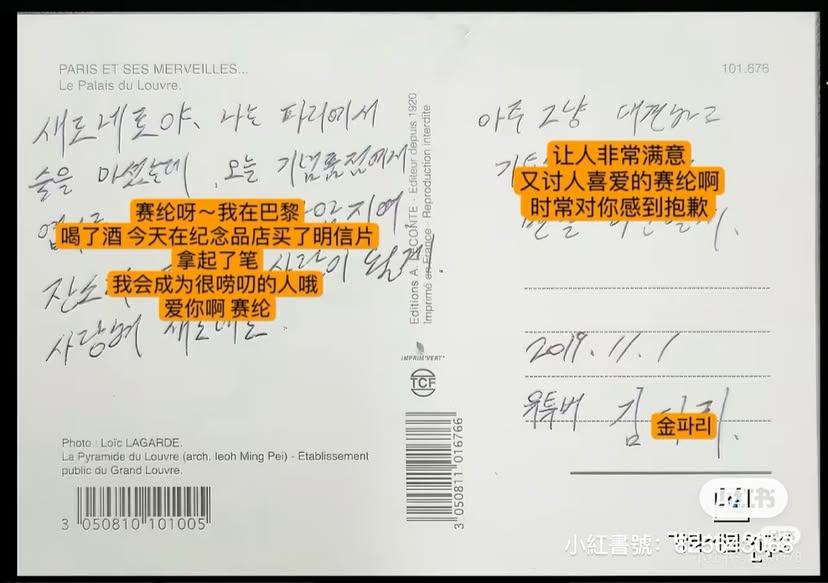 PARIS ET SES MERVEILLES...
Le Palais du Louvre.
101.676
새로네로야, 나는 파리에서
술을 마셨는데, 오늘 기념품점에서
엽
잔소 사람이 될게.
사랑해 새로네로.
赛纶呀～我在巴黎
喝了酒 今天在纪念品店买了明信片
拿起了笔
我会成为很唠叨的人哦
爱你啊 赛纶
Editions A. LECONTE - Editeur depuis 1920
Imprimé en France - Reproduction interdite
IMPRIM'VERT®
TCF
3 050811 016766
아주 그냥 대견하고
기
让人非常满意
又讨人喜爱的赛纶啊
时常对你感到抱歉
2019. 11. 1
유튜버 김
金파리
Photo : Loïc LAGARDE.
La Pyramide du Louvre (arch. Ieoh Ming Pei) - Etablissement
public du Grand Louvre.
3 050810 101005
小红书
小紅書號：